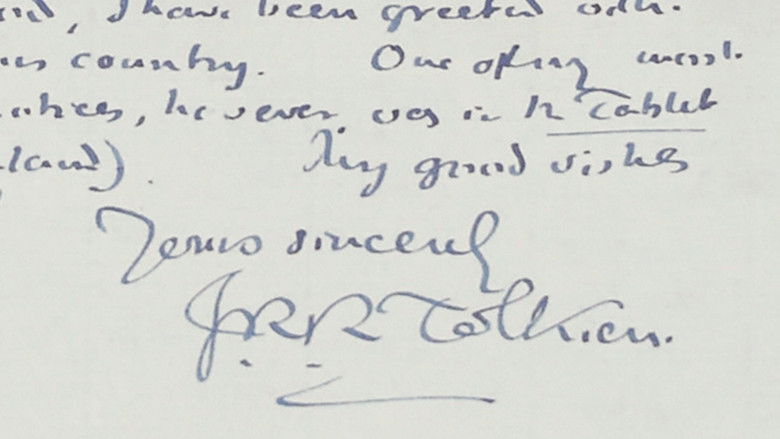 , I have been greeted with.
country. One of my most
notices, however, was in the Tablet
land). My good wishes
Yours sincerely
J.R.R. Tolkien.